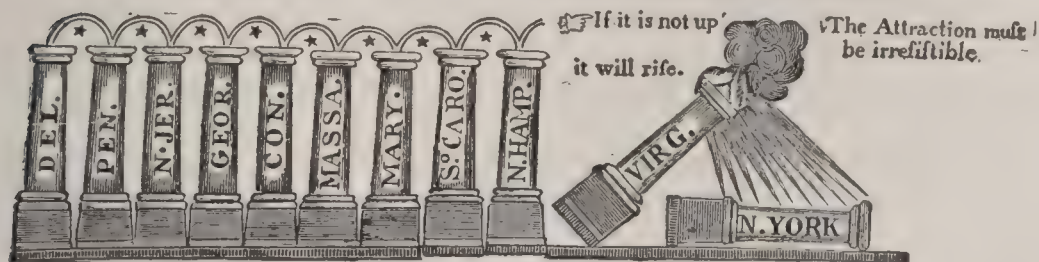 DEL.
PEN.
N.JER.
GEOR.
CON.
MASSA.
MARY.
So. CARO.
N.HAMP.
If it is not up
it will rise.
VIRG.
N.YORK
The Attraction must
be irresistible.